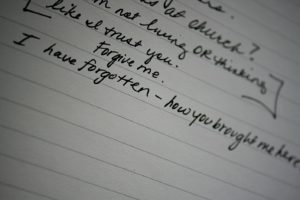 at church?
not living or thinking
like I trust you.
Forgive me.
I have forgotten - how you brought me here